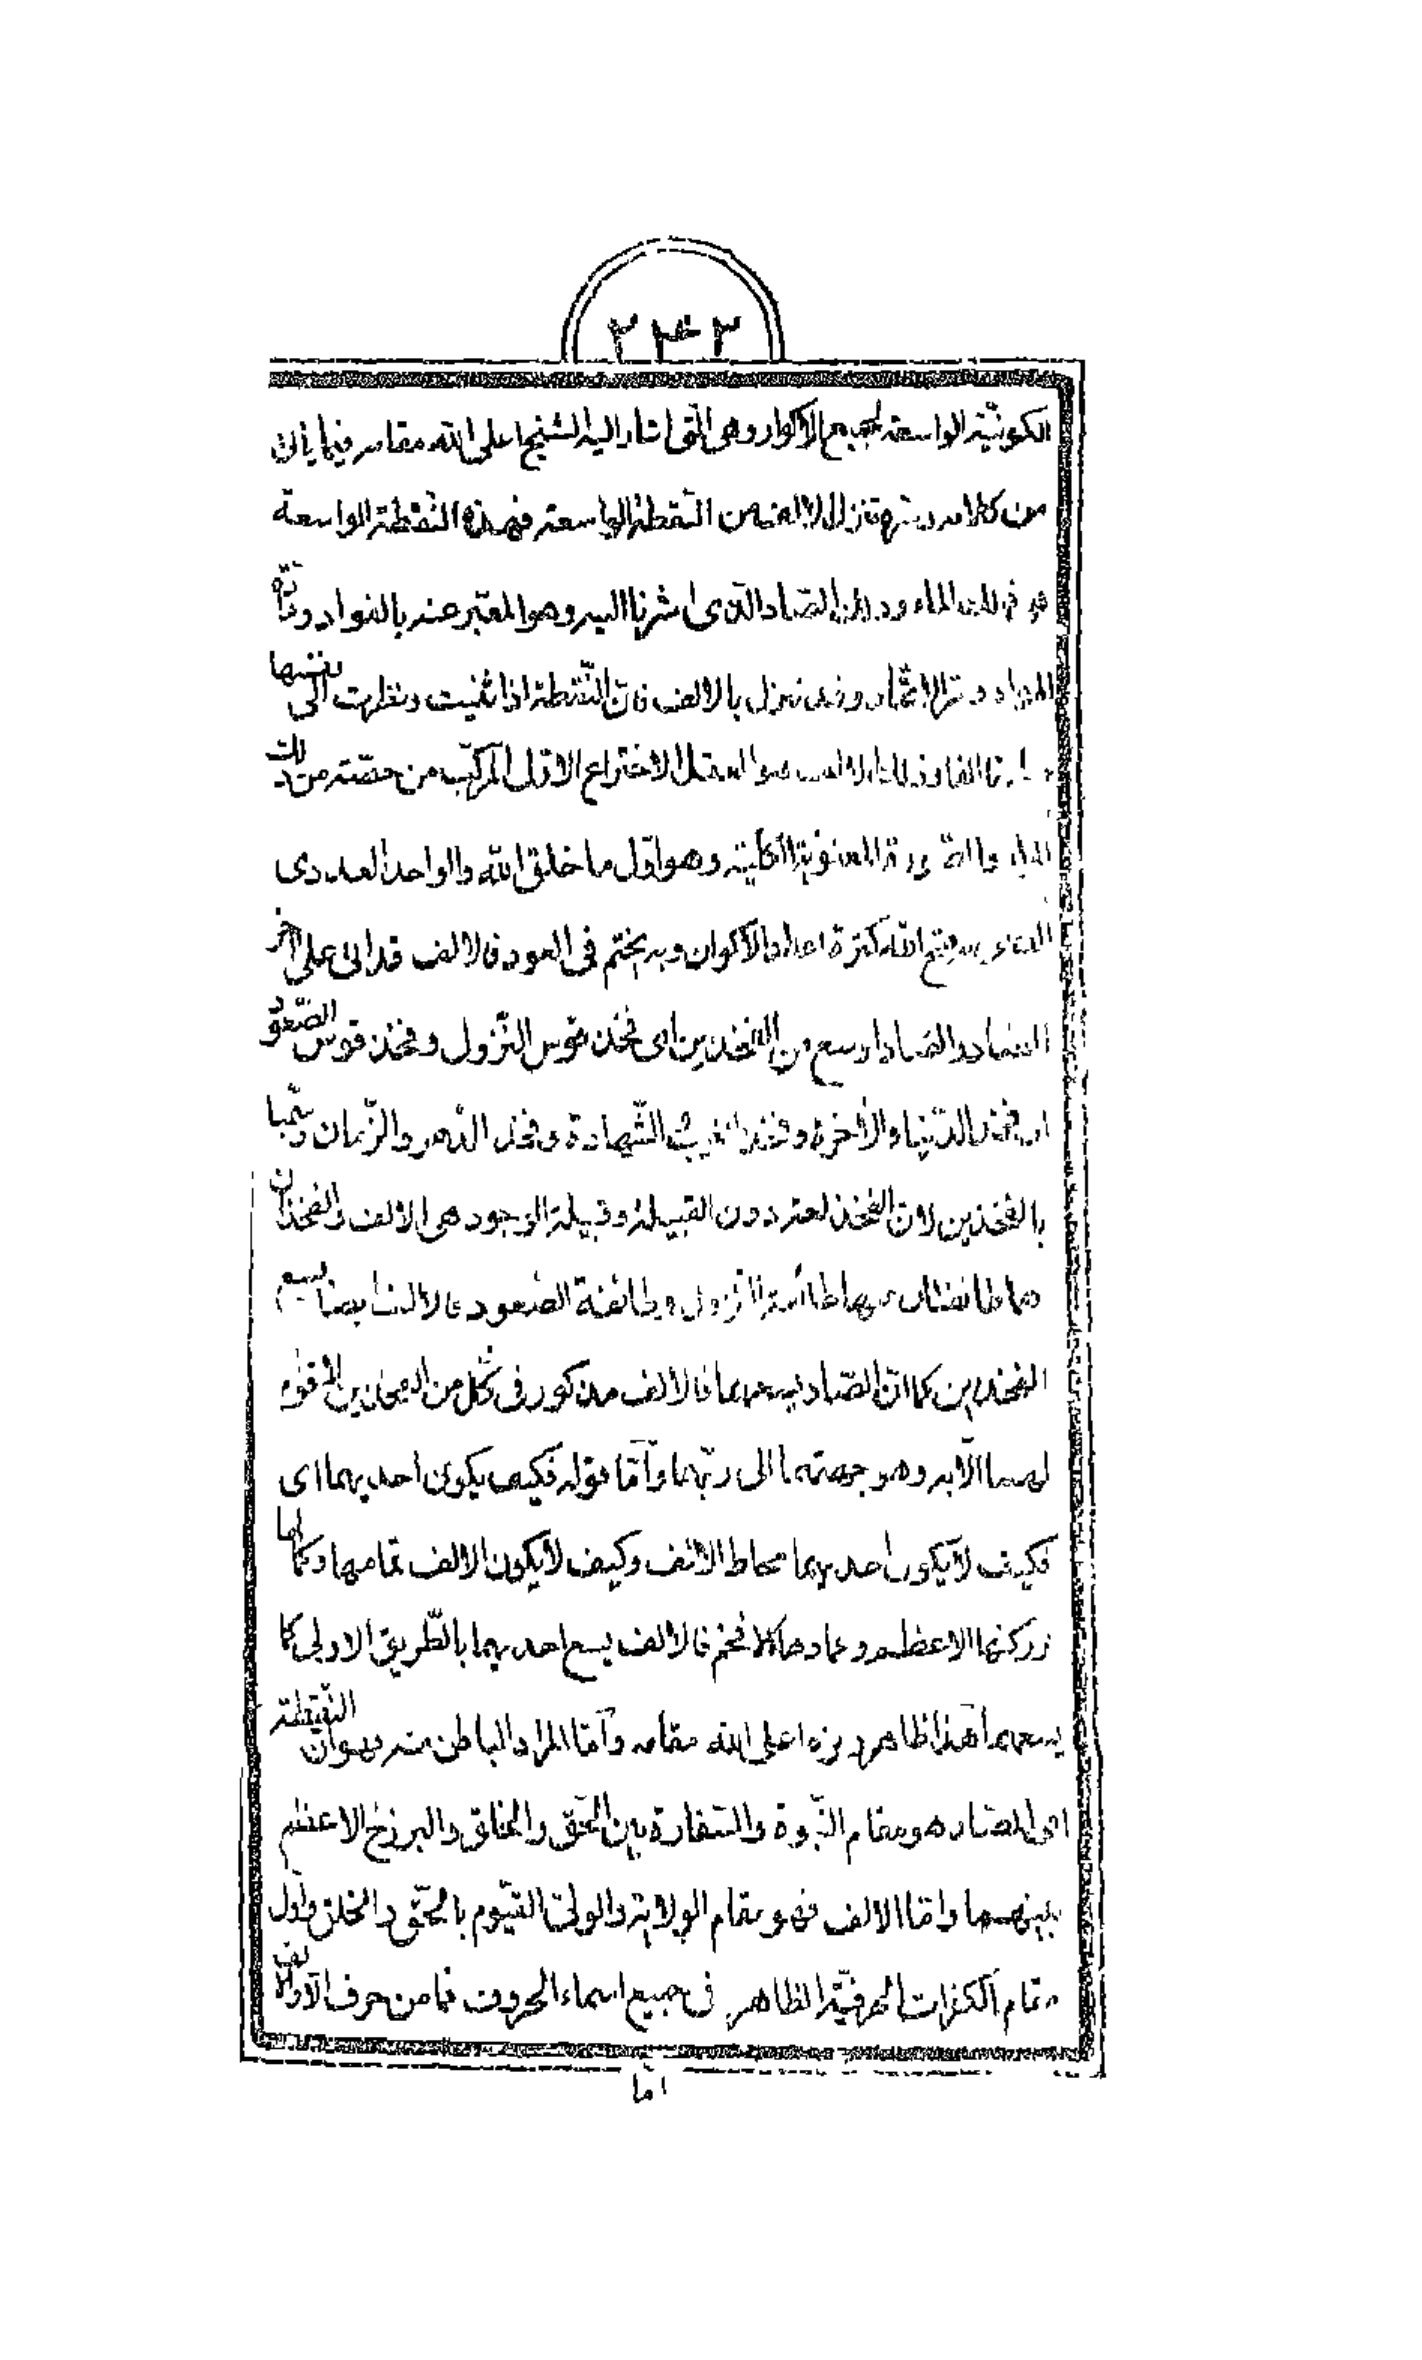 ٢٣٢
الكونيّة الواسعة لجميع الاكوار وهى الّتى اشار اليه الشيخ اعلى الله مقامه فيما يأتى
من كلامه تنزل الالف من النّقطة الواسعة فهذه النّقطة الواسعة
هو ذلك الماء وذلك الصّاد الّذى اشرنا اليه وهو المعبّر عنه بالفواد ومادّة
المواد وقد نزل بالالف فانّ النّقطة اذا ثنيت ونظرت الى نفسها
الفا هو العقل الاختراع الاوّل المركّب من حصّته من ذلك
الماء والصّورة المعنويّة الكلّية وهو اوّل ما خلق الله والواحد العددى
الله كثرة اعداد الاكوان وبه يختم فى العود فالالف قد اتى على اخر
الصاد والصاد اوسع من الفخذين اى فخذ قوس النّزول وفخذ قوس الصّعود
او فخذ الدّنيا والاخرة وفخذ الغيب الشّهادة وفخذ الدّهر والزّمان وسمّيا
بالفخذين لانّ الفخذ لغة دون القبيلة وقبيلة الوجود هى الالف والفخذان
هما طائفتان منها طائفة النّزول وطائفة الصّعود فالالف ايضا يسع
الفخذين كما انّ الصّاد يسعهما فالالف مذكور فى كلّ من الفخذين لا قوام
لهما الّا به وهو جهتهما الى ربّهما وامّا قوله فكيف يكون احديهما اى
فكيف لا يكون احديهما محاط الالف وكيف لا يكون الالف تمامهما وكمالهما
وركنهما الاعظم وعمادهما الافخم فالالف يسع احديهما بالطّريق الاولى كما
يسعهما هذا ظاهر اعلى الله مقامه وامّا المراد الباطن منه فهو ان النّقطة
اى الصّاد هو مقام النّبوة والسّفارة بين الحقّ والخلق والبرزخ الاعظم
بينهما وامّا الالف فهو مقام الولاية والولىّ القيّوم بالحقّ والخلق واوّل
مقام الكثرات الحرفيّة الظاهر فى جميع اسماء الحروف فما من حرف الّا والالف
امّا